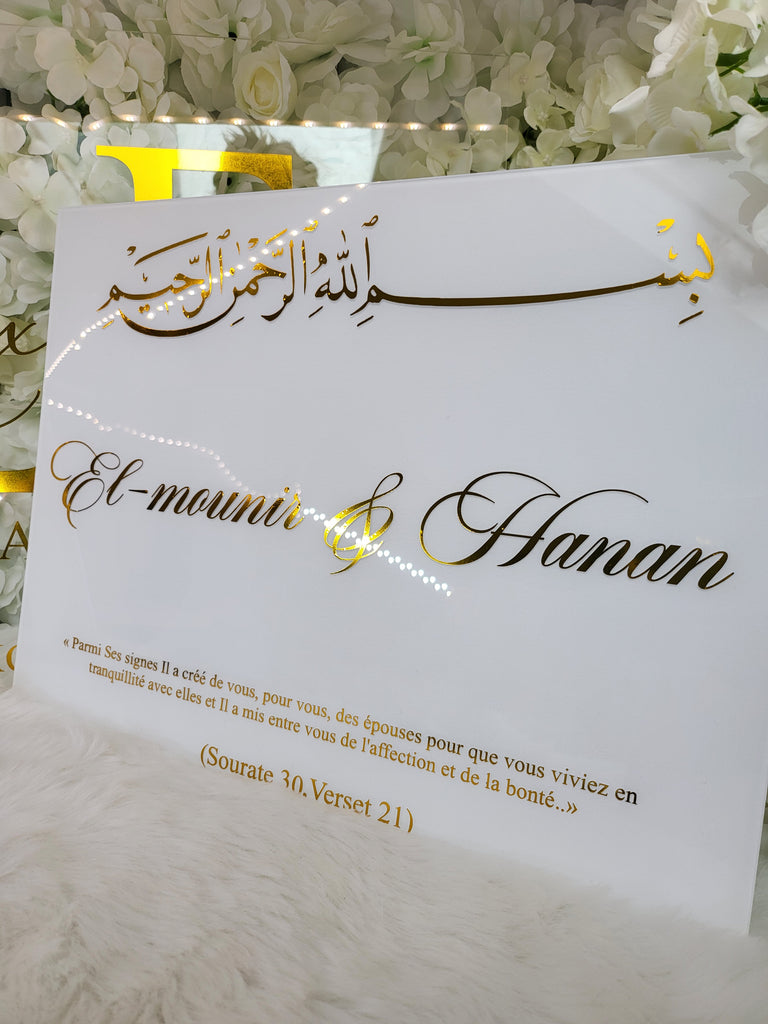 بِسْمِ اللهِ الرَّحْمٰنِ الرَّحِيْمِ
El-mounir & Hanan
« Parmi Ses signes Il a créé de vous, pour vous, des épouses pour que vous viviez en
tranquillité avec elles et Il a mis entre vous de l'affection et de la bonté..»
(Sourate 30,Verset 21)